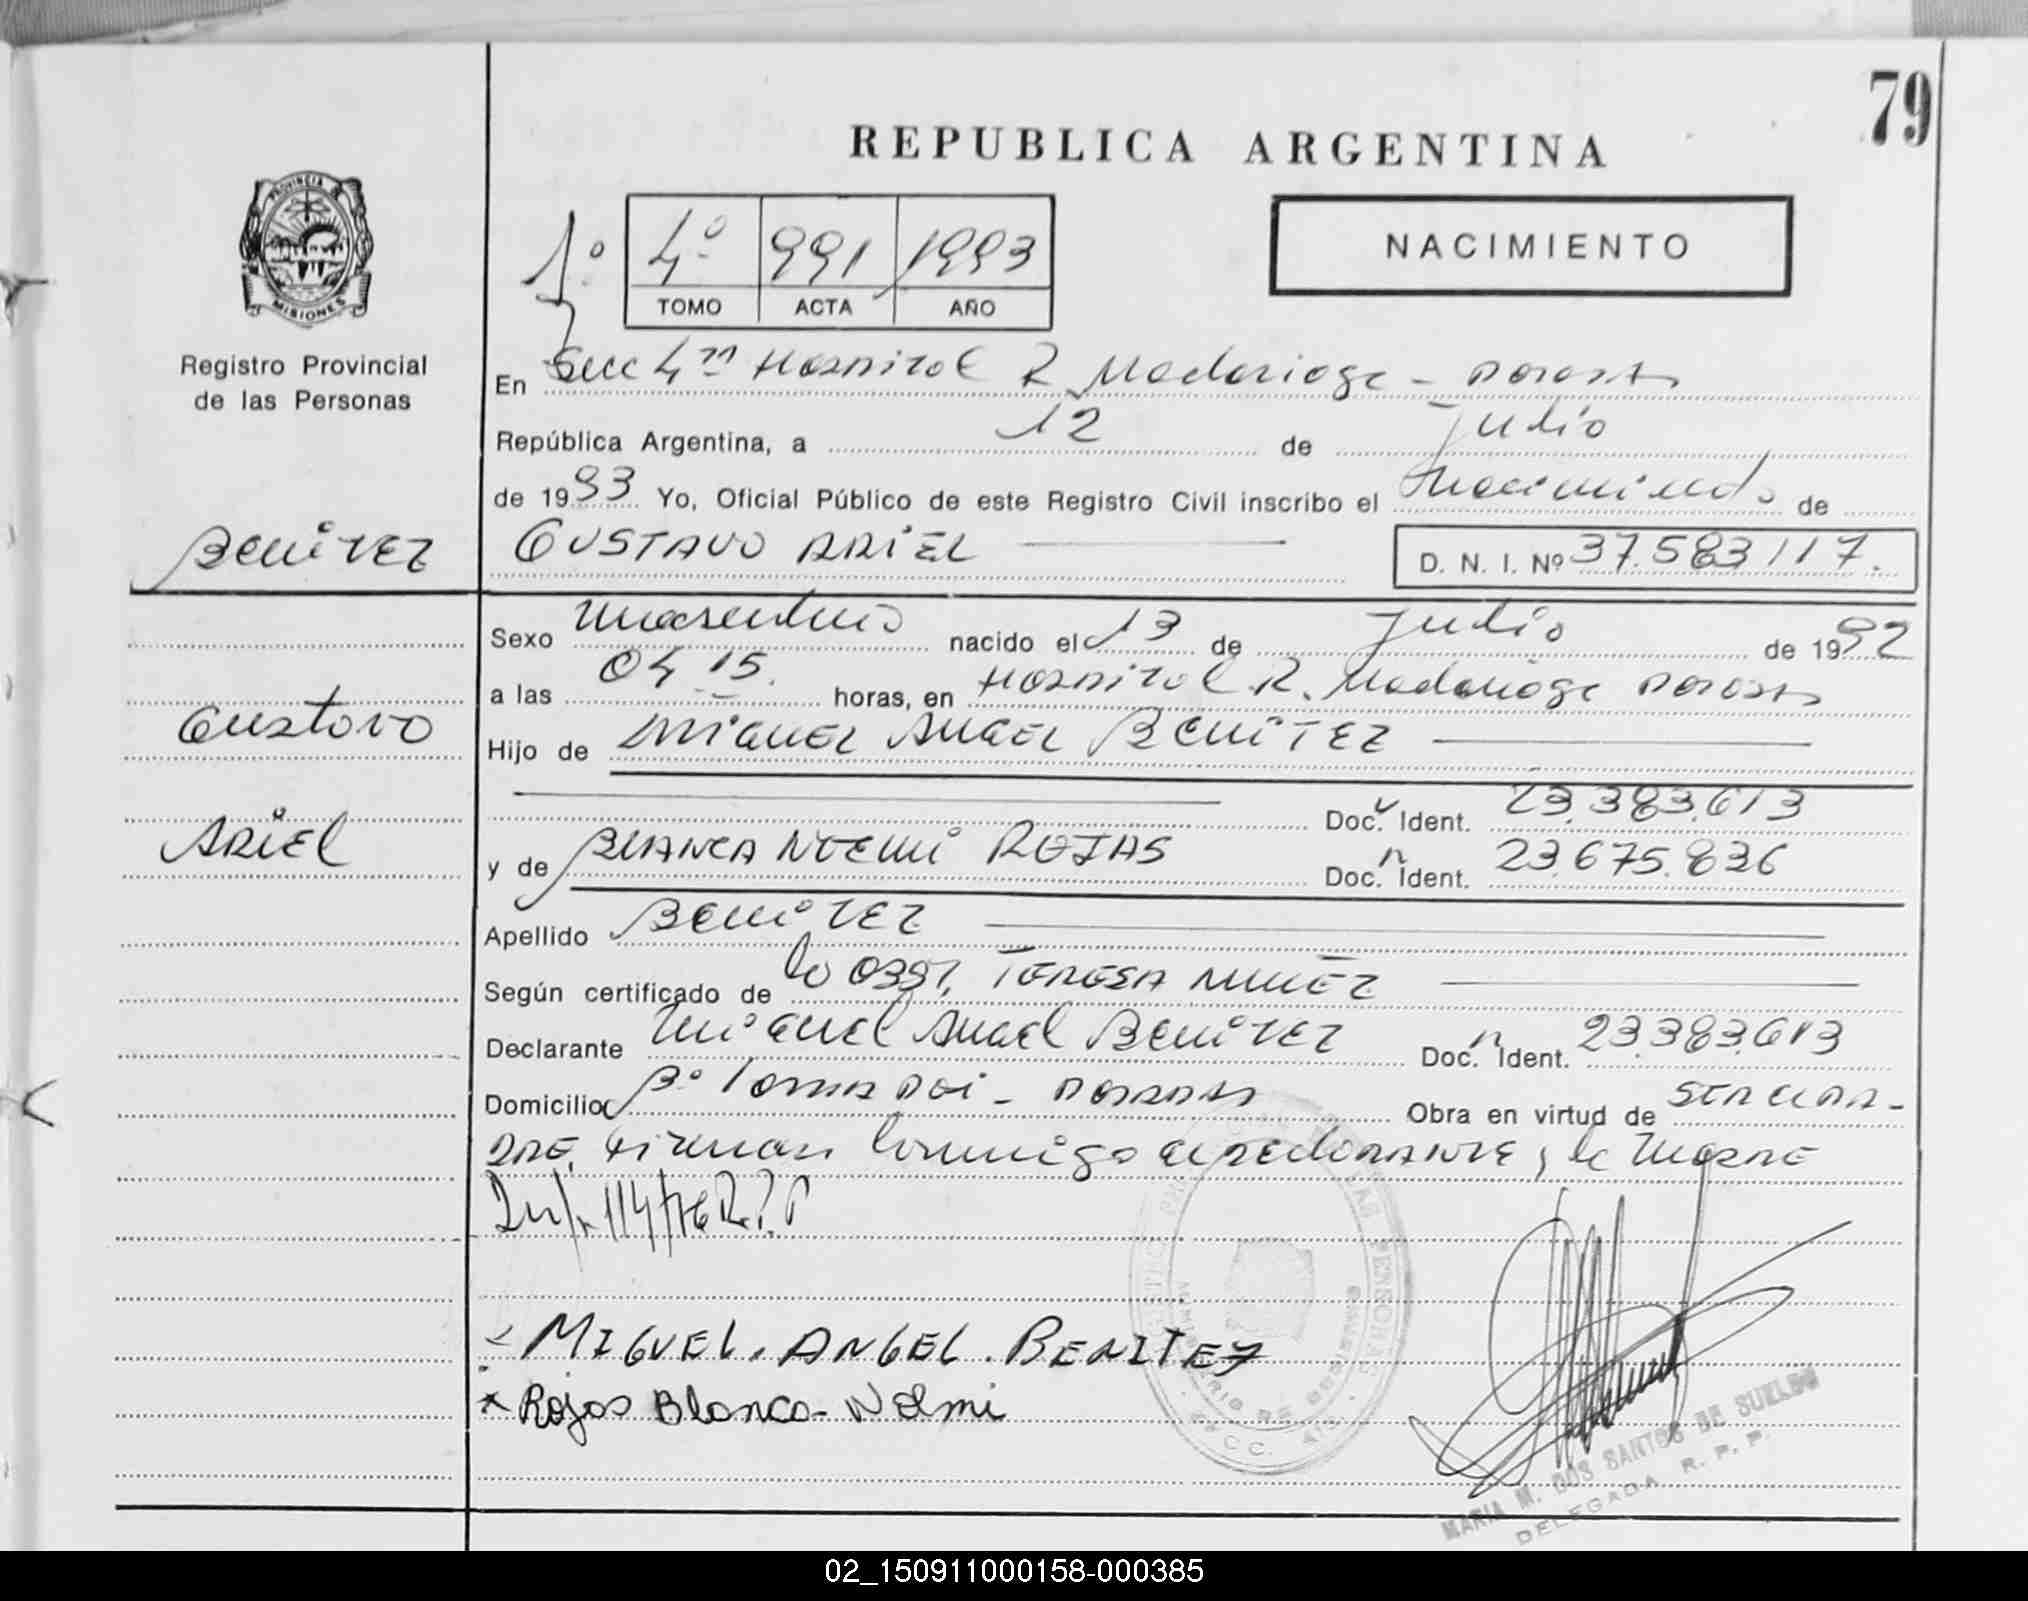 79
REPUBLICA ARGENTINA
PROVINCIA DE MISIONES
Registro Provincial
de las Personas
1º 4º 991 1993
TOMO ACTA AÑO
NACIMIENTO
En Secc 4ta Hospital R. Madariaga - Posadas
República Argentina, a 12 de Julio
de 1993 Yo, Oficial Público de este Registro Civil inscribo el nacimiento de
BENITEZ GUSTAVO ARIEL D. N. I. Nº 37.583117.
Sexo masculino nacido el 13 de Julio de 1992
a las 04 15. horas, en Hospital R. Madariaga Posadas
Gustavo
Hijo de MIGUEL ANGEL BENITEZ
Doc. Ident. 23.383.613
ARIEL
y de BLANCA NOEMI ROJAS Doc. Ident. 23.675.836
Apellido BENITEZ
Según certificado de TERESA NUÑEZ
Declarante Miguel Angel BENITEZ Doc. Ident. 23.383.613
Domicilio Posadas Obra en virtud de
firman conmigo el declarante y la madre
MIGUEL. ANGEL. BENITEZ
Rojas Blanca-Noemi
MARIA M. DOS SANTOS DE SUELDO
DELEGADA R. P. P.
02_150911000158-000385